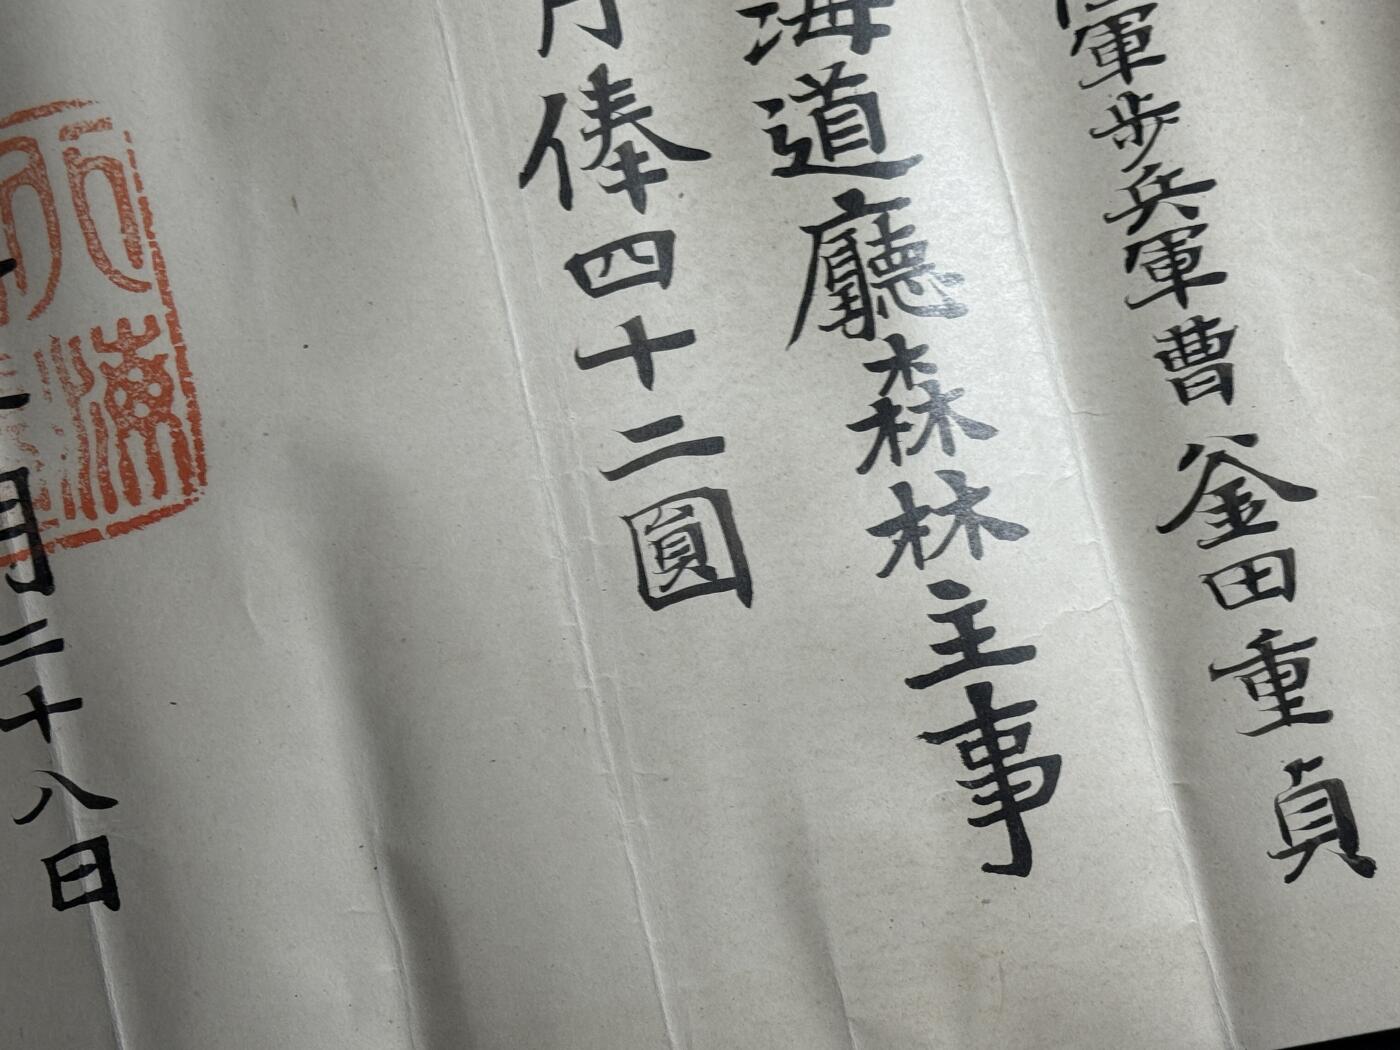 軍歩兵軍曹釜田重貞
海道廳森林主事
月俸四十二圓
月二十八日